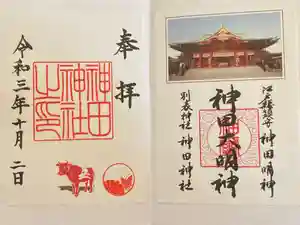 江戸總鎮守 神田明神
神田大明神
別表神社 神田神社
奉拝
神田
神社
之印
令和三年十月二日